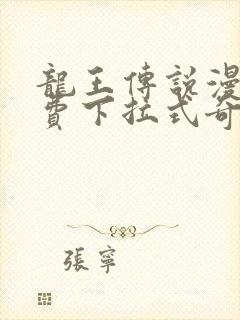 龍王傳說漫
費下拉式奇
張寧